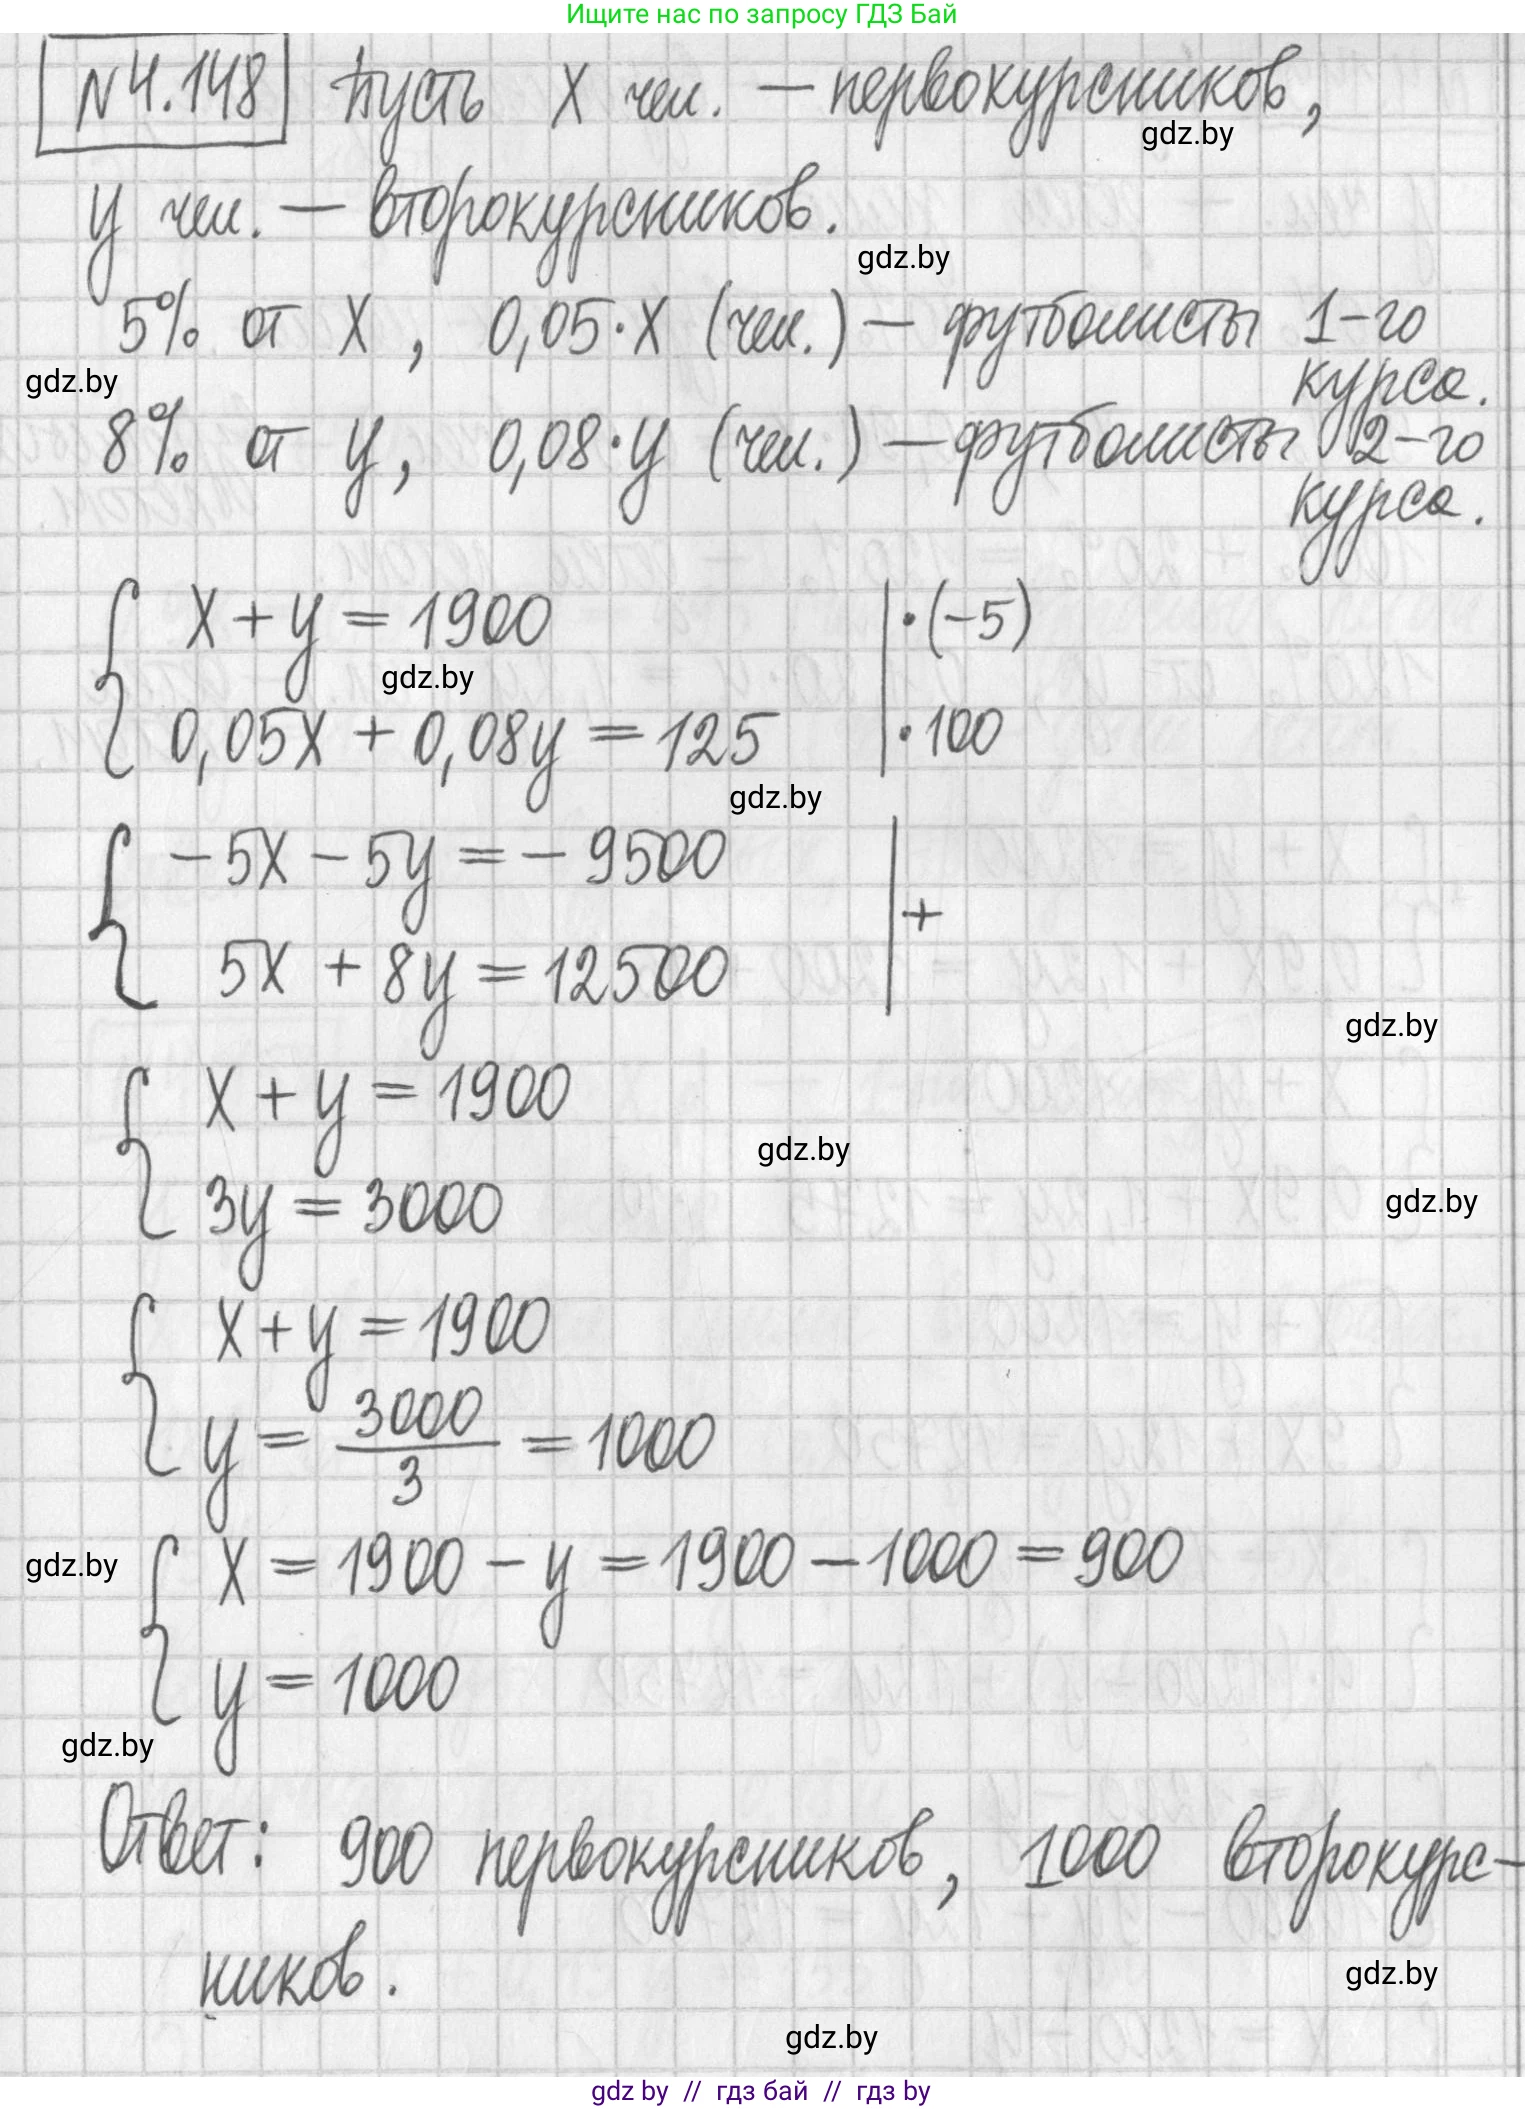 Ищите нас по запросу ГДЗ Бай
№4.148 Пусть x чел. — первокурсников,
gdz.by
y чел. — второкурсников.
gdz.by
5% от x, 0,05·x (чел.) — футболисты 1-го
курса.
gdz.by
8% от y, 0,08·y (чел.) — футболисты 2-го
курса.
x + y = 1900 |·(-5)
gdz.by
0,05x + 0,08y = 125 |·100
gdz.by
-5x - 5y = -9500
+
5x + 8y = 12500
gdz.by
x + y = 1900
gdz.by
3y = 3000
gdz.by
x + y = 1900
y = 3000/3 = 1000
gdz.by
x = 1900 - y = 1900 - 1000 = 900
y = 1000
gdz.by
Ответ: 900 первокурсников, 1000 второкурс-
ников.
gdz.by
gdz.by
gdz by // гдз бай // гдз by